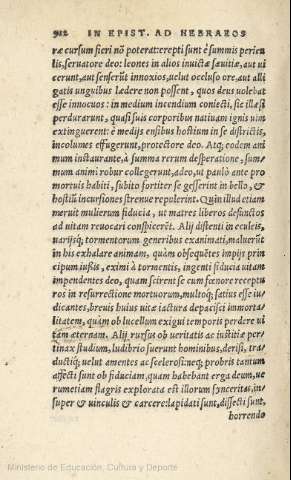 912 IN EPIST. AD HEBRAEOS
ræ cursum fieri nō poterat: erepti sunt è summis pericu
lis, seruatore deo: leones in alios inuictæ sæuitiæ, aut ui
cerunt, aut senserūt innoxios, uelut occluso ore, aut alli
gatis unguibus Ledere non possent, quos deus uolebat
esse innocuos: in medium incendium coniecti, sic illæsi
perdurarunt, quasi suis corporibus natiuam ignis uim
extinguerent: è medijs ensibus hostium in se districtis,
incolumes effugerunt, protectore deo. Atq; eodem ani
mum instaurante, à summa rerum desperatione, sum⸗
mum animi robur collegerunt, adeo, ut paulò ante pro
mortuis habiti, subito fortiter se gesserint in bello, &
hostiū incursiones strenue repulerint. Quin illud etiam
meruit mulierum fiducia, ut matres liberos defunctos
ad uitam reuocari conspicerēt. Alij distenti in eculeis,
uarijsq; tormentorum generibus exanimati, maluerūt
in his exhalare animam, quàm obsequētes impijs prin
cipum iußis, eximi à tormentis, ingenti fiducia uitam
impendentes deo, quam scirent se cum fœnore receptu
ros in resurrectione mortuorum, multoq; satius esse iu
dicantes, breuis huius uitæ iactura depacisci immorta⸗
litatem, quàm ob lucellum exigui temporis perdere ui
tam æternam. Alij rursus ob ueritatis ac iustitiæ perti
tinax studium, ludibrio fuerunt hominibus, derisi, tra⸗
ductiq; uelut amentes ac scelerosi: neq; probris tantum
affecti sunt ob fiduciam, quam habebant erga deum, ue
rumetiam flagris explorata est illorum synceritas, in⸗
super & uinculis & carcere: lapidati sunt, dissecti sunt,
horrendo
Ministerio de Educación, Cultura y Deporte